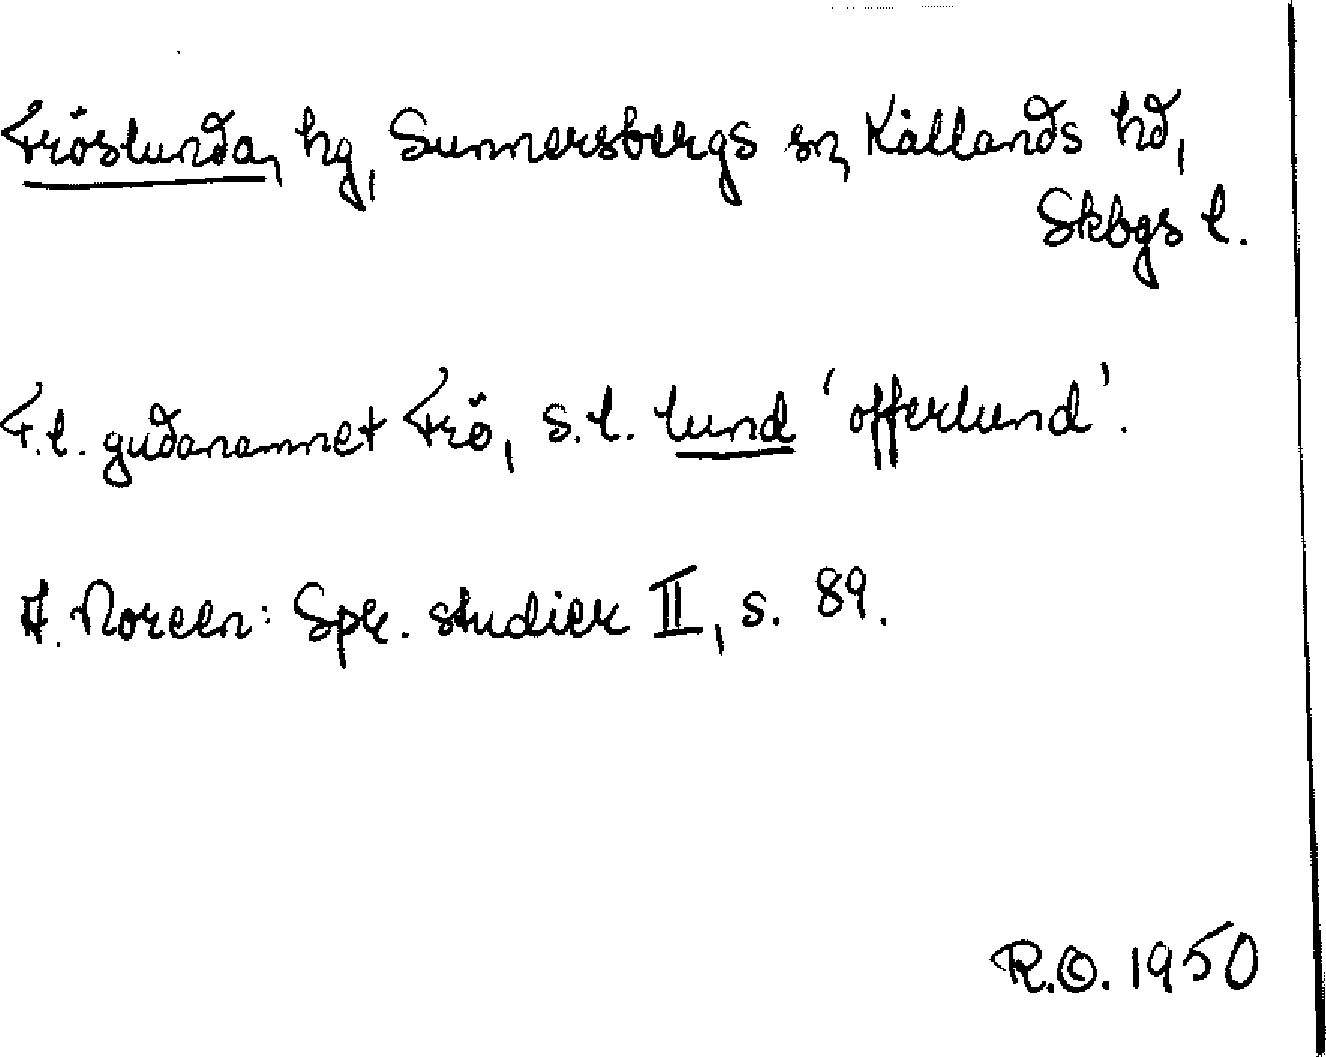 Fröslunda, hg, Sunnersbergs sn, Kållands hd,
Skbgs l.
F.l. gudanamnet Frö, s.l. lund 'offerlund'.
A. Noreen: Spr. studier II, s. 89.
R.O. 1950